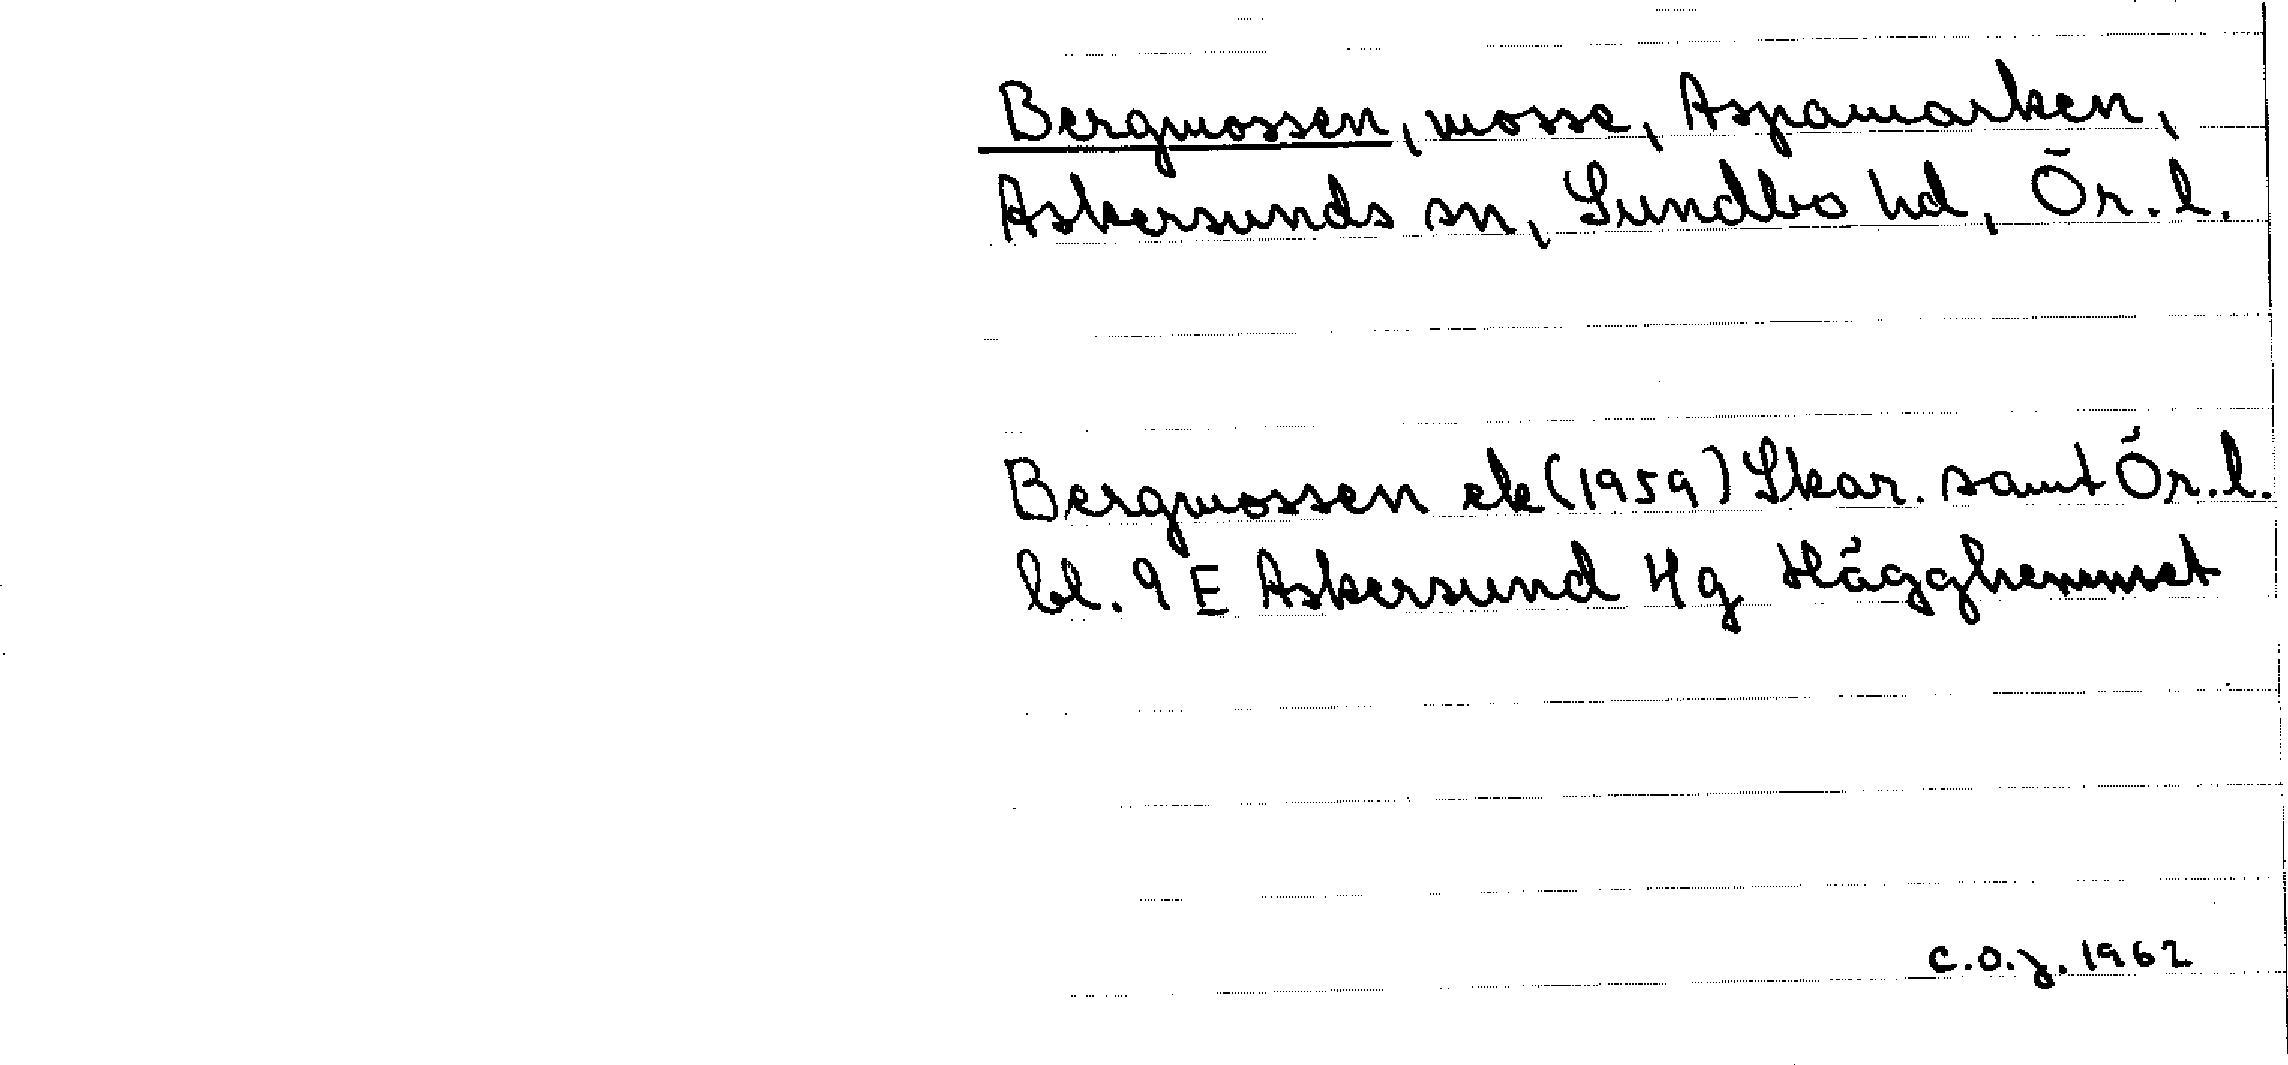 Bergmossen, mosse, Aspamarken,
Askersunds sn, Sundbo hd, Ör. l.
Bergmossen ek (1959) Skar. samt Ör. l.
bl. 9 E Askersund 4g Hägghemmet
C.O.J. 1962